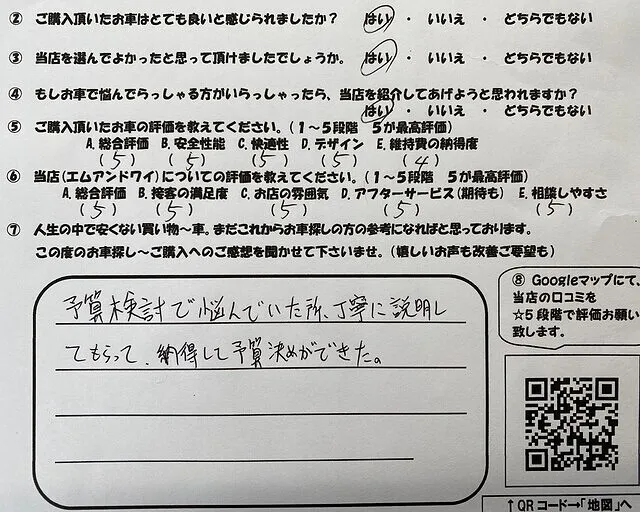 ② ご購入頂いたお車はとても良いと感じられましたか？ はい ・ いいえ ・ どちらでもない
③ 当店を選んでよかったと思って頂けましたでしょうか。 はい ・ いいえ ・ どちらでもない
④ もしお車で悩んでらっしゃる方がいらっしゃったら、当店を紹介してあげようと思われますか？
はい ・ いいえ ・ どちらでもない
⑤ ご購入頂いたお車の評価を教えてください。(１～５段階 ５が最高評価)
A.総合評価 B.安全性能 C.快適性 D.デザイン E.維持費の納得度
(5) (5) (5) (5) (4)
⑥ 当店(エムアンドワイ)についての評価を教えてください。(１～５段階 ５が最高評価)
A.総合評価 B.接客の満足度 C.お店の雰囲気 D.アフターサービス(期待も) E.相談しやすさ
(5) (5) (5) (5) (5)
⑦ 人生の中で安くない買い物～車。まだこれからお車探しの方の参考になればと思っております。
この度のお車探し～ご購入へのご感想を聞かせて下さいませ。(嬉しいお声も改善ご要望も)
予算検討で悩んでいた所、丁寧に説明し
てもらって、納得して予算決めができた。
⑧ Googleマップにて、
当店の口コミを
☆５段階で評価お願い
致します。
↑QRコード→「地図」へ